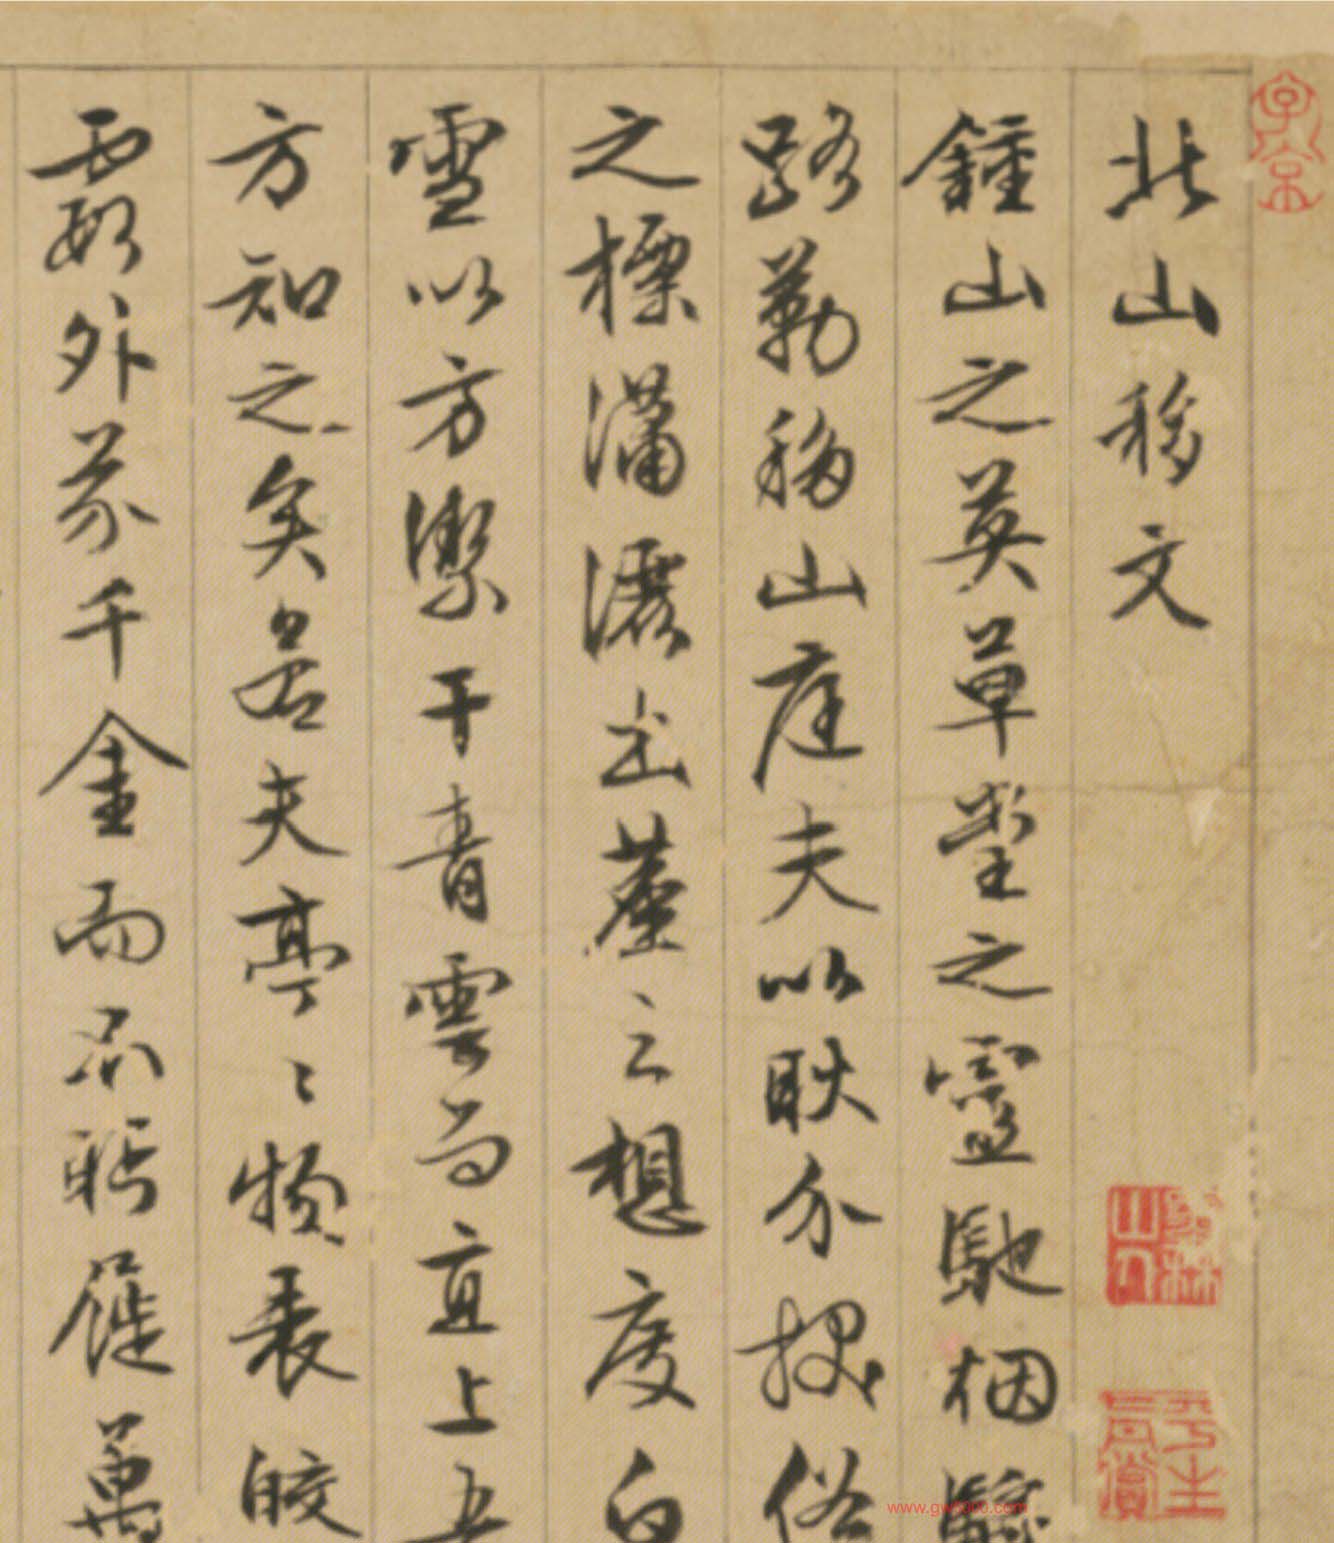 子京
北山移文
鍾山之英草堂之靈馳烟驛
路勒移山庭夫以耿介拔俗
之標瀟灑出塵之想度白
雪以方潔干青雲而直上吾
方知之矣若夫亭〻物表皎
霞外芥千金而不眄屣萬
墨林山人